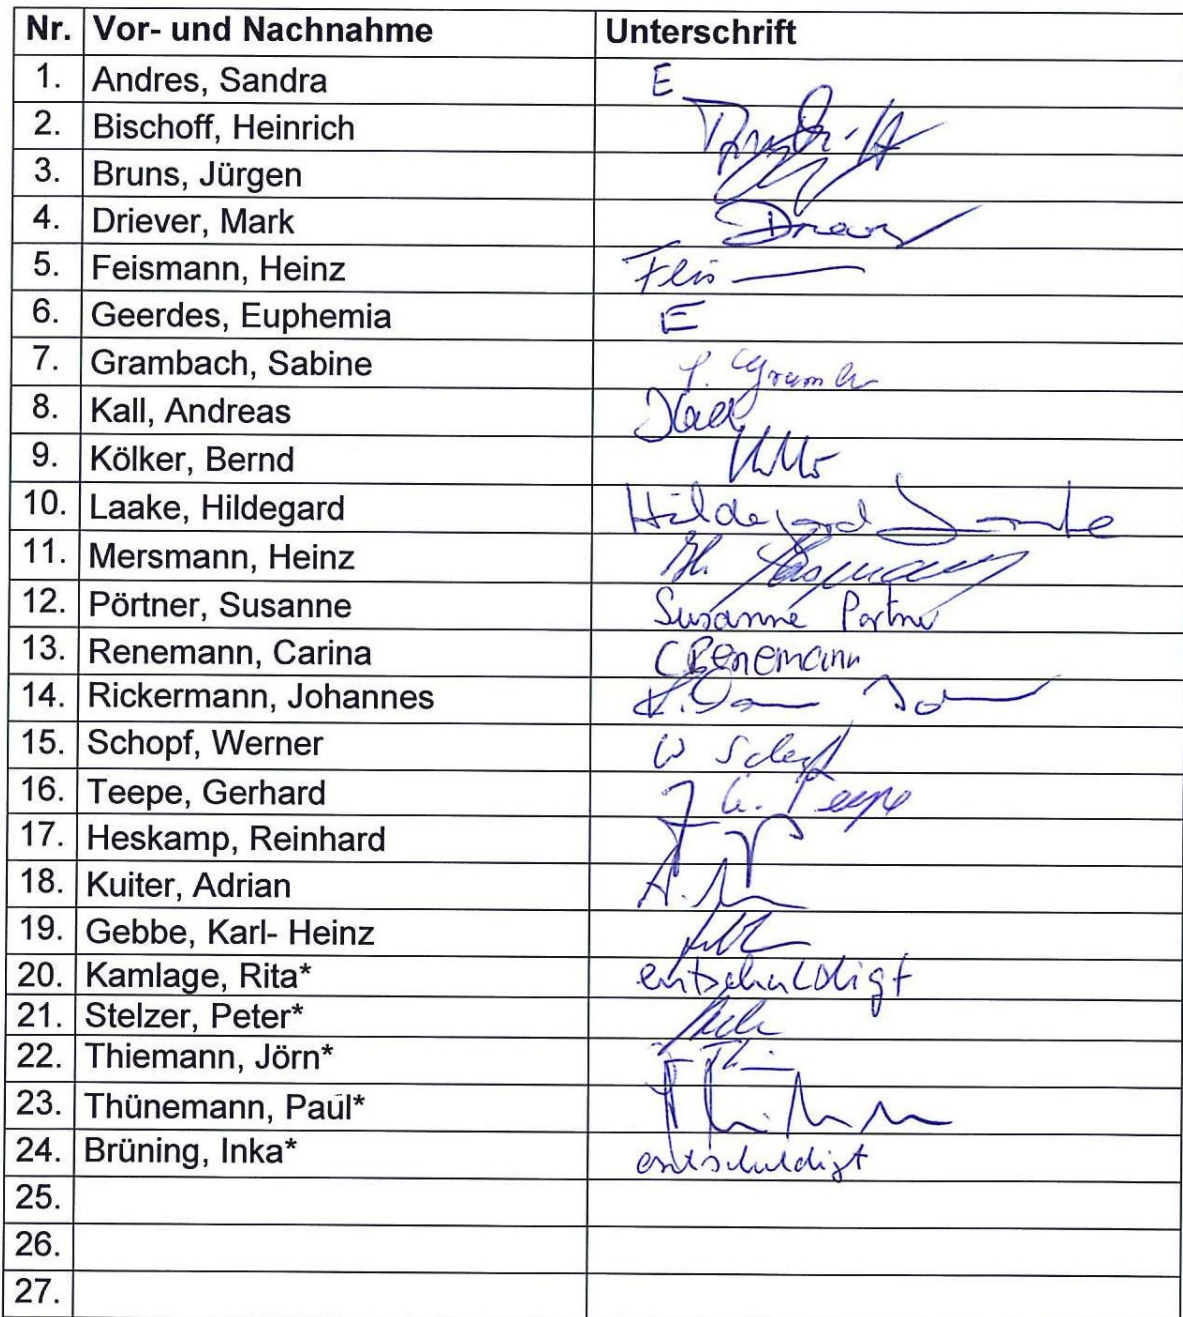 Nr. Vor- und Nachnahme Unterschrift
1. Andres, Sandra E
2. Bischoff, Heinrich
3. Bruns, Jürgen
4. Driever, Mark
5. Feismann, Heinz
6. Geerdes, Euphemia E
7. Grambach, Sabine
8. Kall, Andreas
9. Kölker, Bernd
10. Laake, Hildegard Hildegard Laake
11. Mersmann, Heinz
12. Pörtner, Susanne Susanne Portner
13. Renemann, Carina C Renemann
14. Rickermann, Johannes
15. Schopf, Werner W Schopf
16. Teepe, Gerhard G. Teepe
17. Heskamp, Reinhard
18. Kuiter, Adrian
19. Gebbe, Karl- Heinz
20. Kamlage, Rita* entschuldigt
21. Stelzer, Peter*
22. Thiemann, Jörn*
23. Thünemann, Paul*
24. Brüning, Inka* entschuldigt
25.
26.
27.